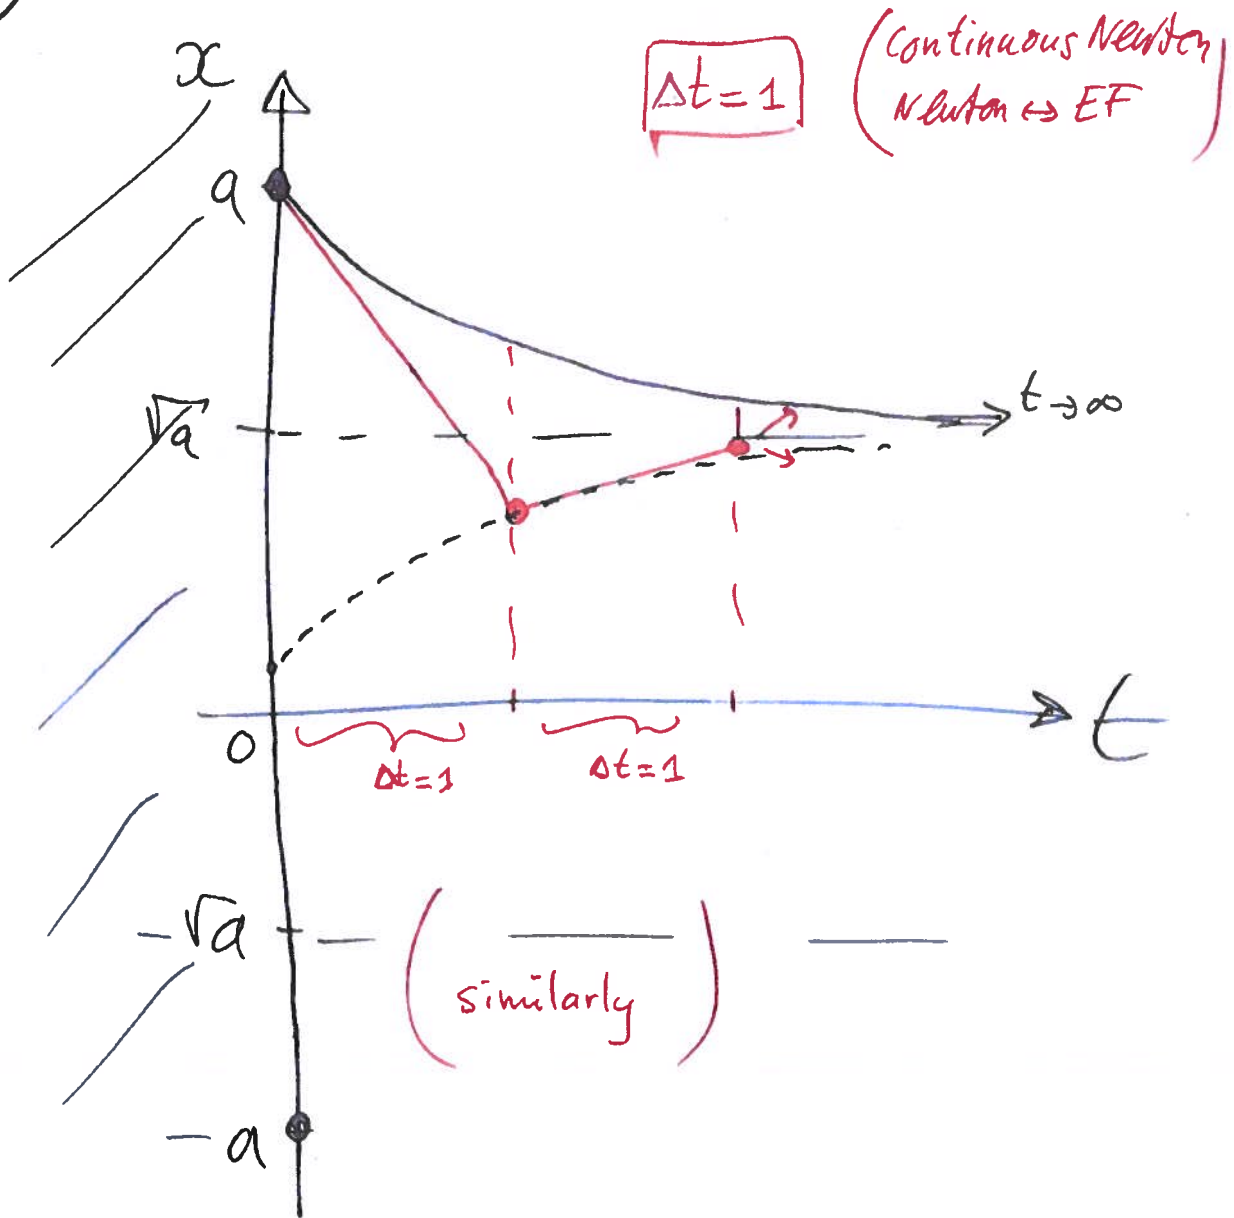 x
Δt = 1
(Continuous Newton
Newton ↔ EF)
a
√a
t→∞
0
t
Δt=1
Δt=1
-√a
(similarly)
-a